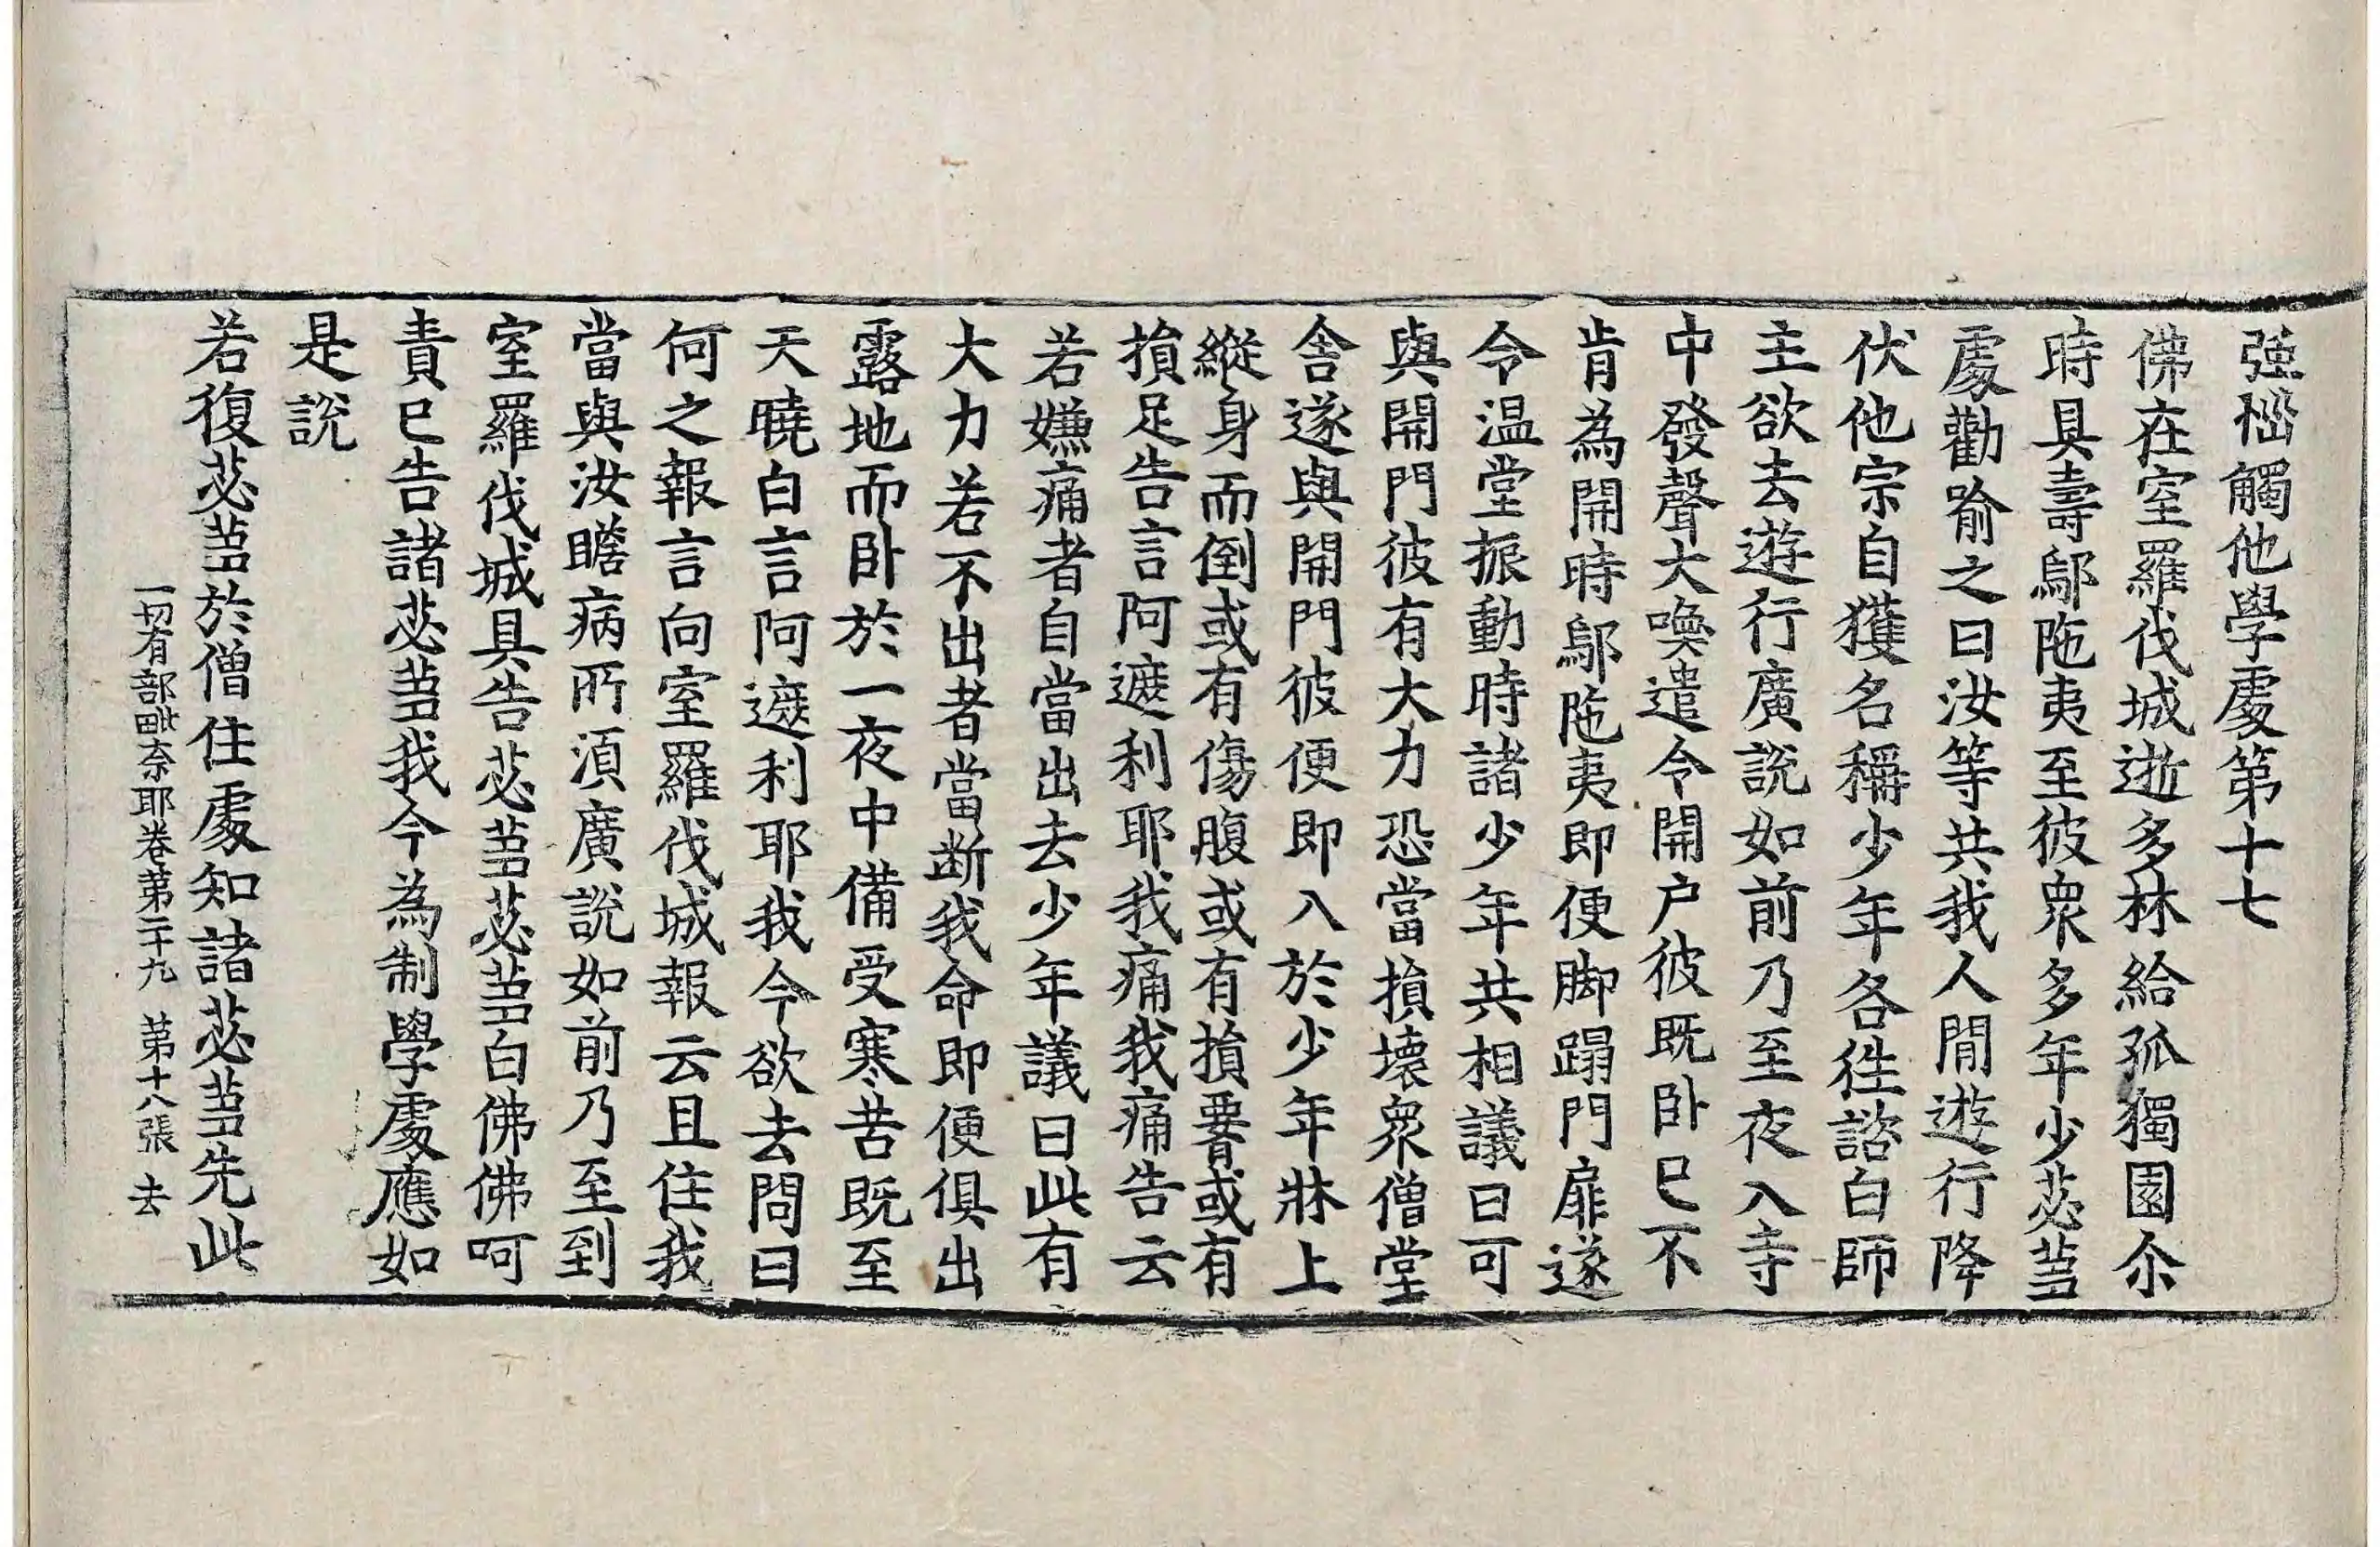 強惱觸他學處第十七
佛在室羅伐城逝多林給孤獨園尒
時具壽鄔陁夷至彼眾多年少苾芻
處勸喻之曰汝等共我人間遊行降
伏他宗自獲名稱少年各往諮白師
主欲去遊行廣說如前乃至夜入寺
中發聲大喚遣令開户彼既卧已不
肯為開時鄔陁夷即便脚蹋門扉遂
令温堂振動時諸少年共相議曰可
與開門彼有大力恐當損壞眾僧堂
舍遂與開門彼便即入於少年牀上
縱身而倒或有傷腹或有損䐡或有
損足告言阿遮利耶我痛我痛告云
若嫌痛者自當出去少年議曰此有
大力若不出者當断我命即便俱出
露地而卧於一夜中備受寒苦既至
天曉白言阿遮利耶我今欲去問曰
何之報言向室羅伐城報云且住我
當與汝瞻病所須廣說如前乃至到
室羅伐城具告苾芻苾芻白佛佛呵
責已告諸苾芻我今為制學處應如
是說
若復苾芻於僧住處知諸苾芻先此
一切有部毗奈耶卷第二十九 第十八張 去